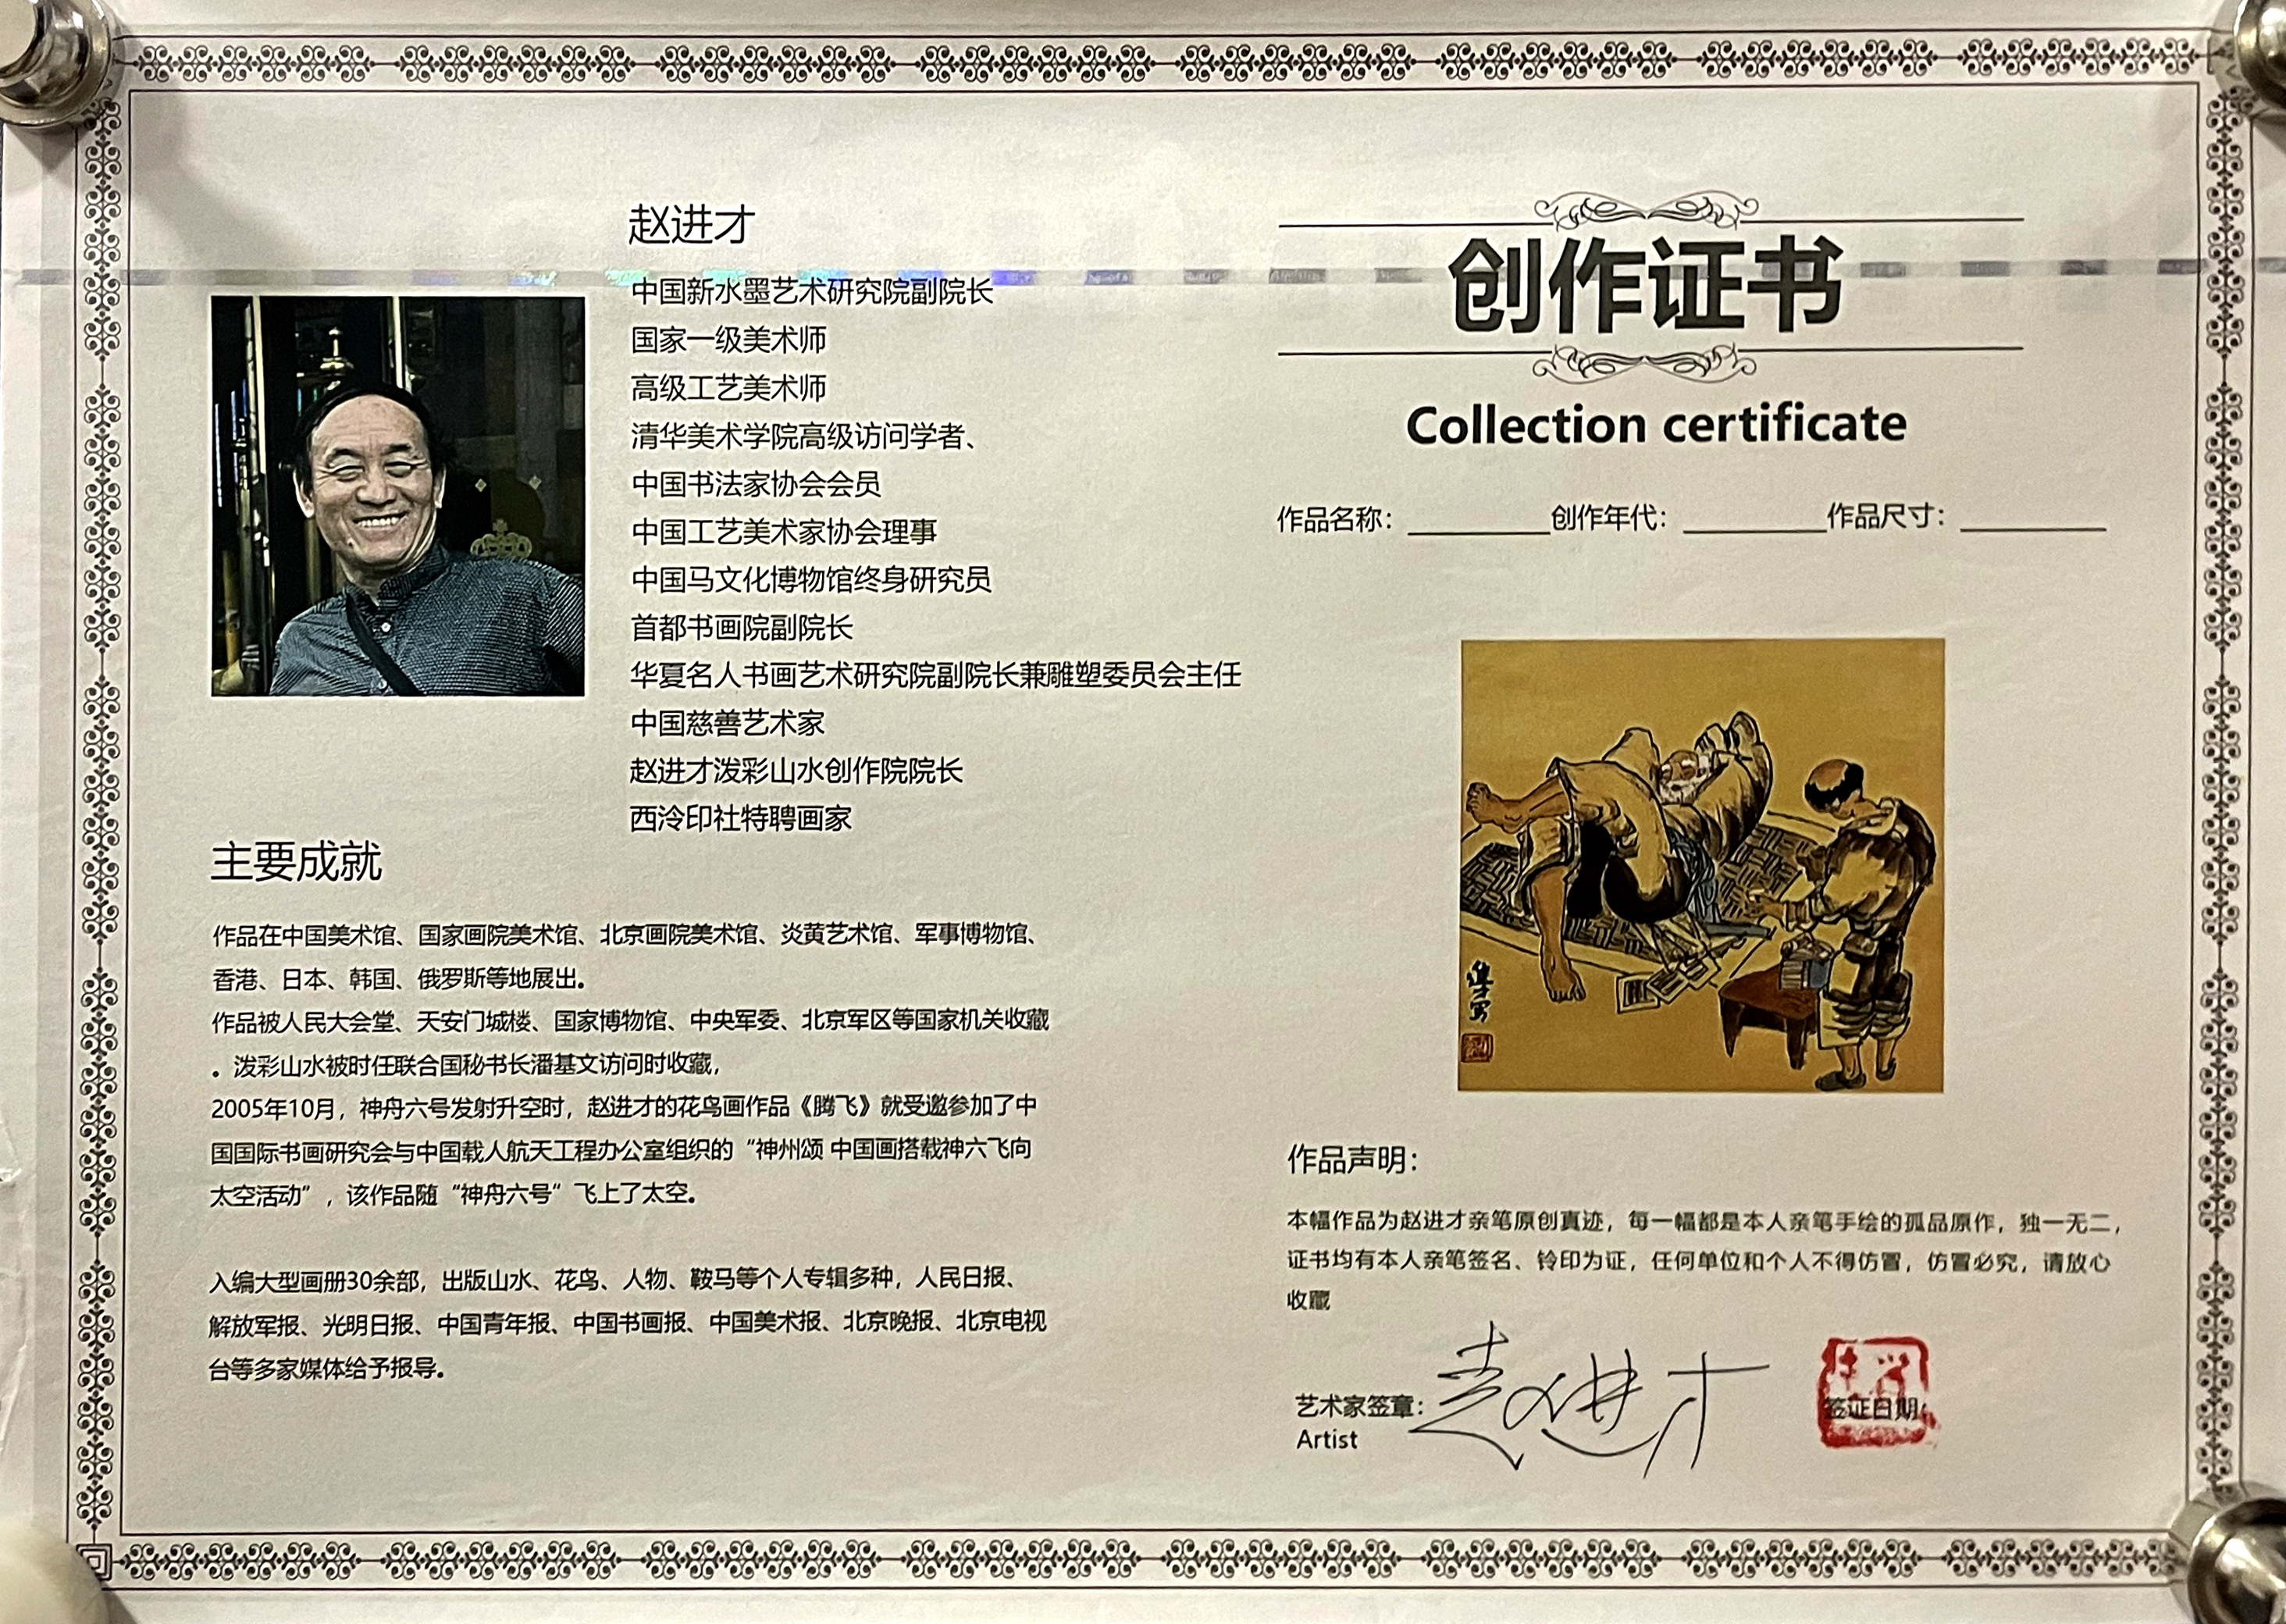 赵进才
中国新水墨艺术研究院副院长
国家一级美术师
高级工艺美术师
清华美术学院高级访问学者、
中国书法家协会会员
中国工艺美术家协会理事
中国马文化博物馆终身研究员
首都书画院副院长
华夏名人书画艺术研究院副院长兼雕塑委员会主任
中国慈善艺术家
赵进才泼彩山水创作院院长
西泠印社特聘画家
主要成就
作品在中国美术馆、国家画院美术馆、北京画院美术馆、炎黄艺术馆、军事博物馆、
香港、日本、韩国、俄罗斯等地展出。
作品被人民大会堂、天安门城楼、国家博物馆、中央军委、北京军区等国家机关收藏
。泼彩山水被时任联合国秘书长潘基文访问时收藏,
2005年10月，神舟六号发射升空时，赵进才的花鸟画作品《腾飞》就受邀参加了中
国国际书画研究会与中国载人航天工程办公室组织的“神州颂 中国画搭载神六飞向
太空活动”，该作品随“神舟六号”飞上了太空。
入编大型画册30余部，出版山水、花鸟、人物、鞍马等个人专辑多种，人民日报、
解放军报、光明日报、中国青年报、中国书画报、中国美术报、北京晚报、北京电视
台等多家媒体给予报导。
创作证书
Collection certificate
作品名称：________创作年代：________作品尺寸：________
进才写
作品声明：
本幅作品为赵进才亲笔原创真迹，每一幅都是本人亲笔手绘的孤品原作，独一无二，
证书均有本人亲笔签名、铃印为证，任何单位和个人不得仿冒，仿冒必究，请放心
收藏
艺术家签章：赵进才 签证日期:
Artist